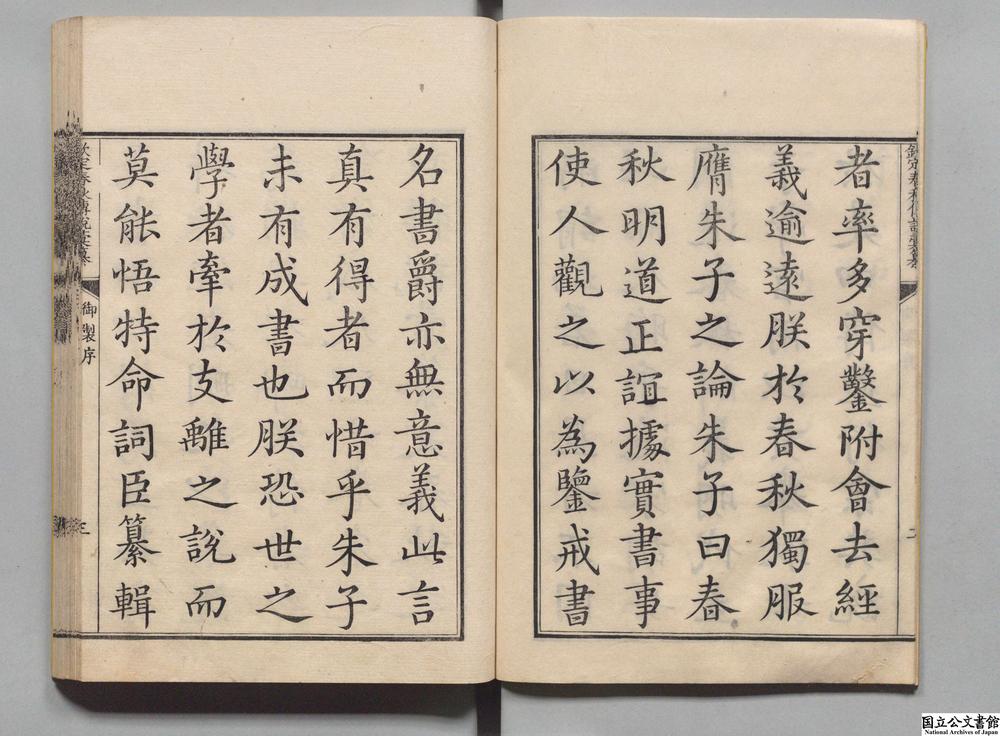 者率多穿鑿附會去經
義逾遠朕於春秋獨服
膺朱子之論朱子曰春
秋明道正誼據實書事
使人觀之以為鑒戒書
名書爵亦無意義此言
真有得者而惜乎朱子
未有成書也朕恐世之
學者牽於支離之說而
莫能悟特命詞臣纂輯
御製序
三
国立公文書館
National Archives of Japan